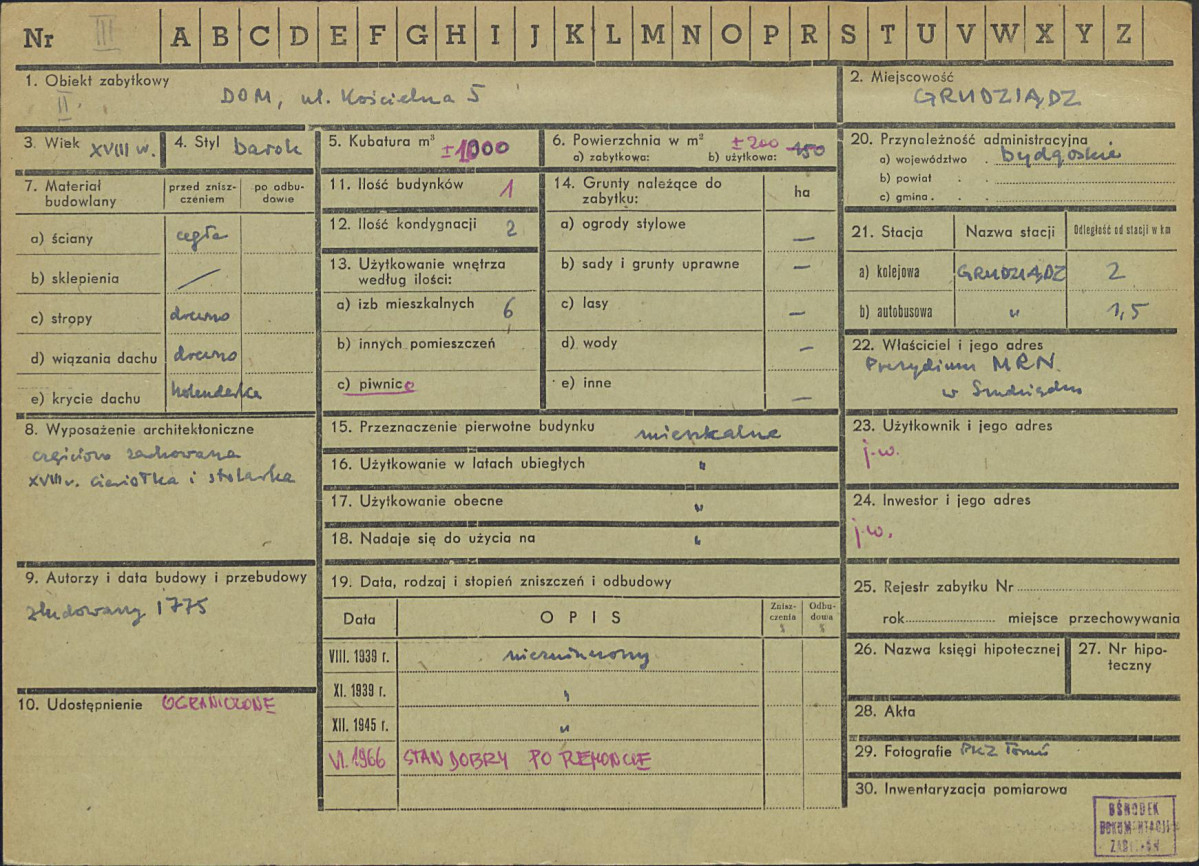 Nr III A B C D E F G H I J K L M N O P R S T U V W X Y Z
1. Obiekt zabytkowy
II.
DOM, ul. Kościelna 5
2. Miejscowość
GRUDZIĄDZ
3. Wiek XVIII w.
4. Styl barok
5. Kubatura m³
±1000
6. Powierzchnia w m²
a) zabytkowa: b) użytkowa:
±200 150
20. Przynależność administracyjna
a) województwo . bydgoskie
b) powiat . .
c) gmina . .
7. Materiał budowlany
przed znisz-
czeniem
po odbu-
dowie
a) ściany cegła
b) sklepienia /
c) stropy drewno
d) wiązania dachu drewno
e) krycie dachu holenderka
11. Ilość budynków 1
12. Ilość kondygnacji 2
13. Użytkowanie wnętrza
według ilości:
a) izb mieszkalnych 6
b) innych pomieszczeń
c) piwnice
14. Grunty należące do
zabytku:
ha
a) ogrody stylowe —
b) sady i grunty uprawne —
c) lasy —
d) wody —
e) inne —
21. Stacja Nazwa stacji Odległość od stacji w km
a) kolejowa GRUDZIĄDZ 2
b) autobusowa " 1,5
22. Właściciel i jego adres
Prezydium MRN
w Grudziądzu
8. Wyposażenie architektoniczne
częściowo zachowana
XVIII w. ciesiołka i stolarka
15. Przeznaczenie pierwotne budynku mieszkalne
16. Użytkowanie w latach ubiegłych "
17. Użytkowanie obecne "
18. Nadaje się do użycia na "
23. Użytkownik i jego adres
j.w.
24. Inwestor i jego adres
j.w.
9. Autorzy i data budowy i przebudowy
zbudowany 1775
19. Data, rodzaj i stopień zniszczeń i odbudowy
Data OPIS
Znisz-
czenia
%
Odbu-
dowa
%
VIII. 1939 r. niezniszczony
XI. 1939 r. "
XII. 1945 r. "
VI. 1966 STAN DOBRY PO REMONCIE
25. Rejestr zabytku Nr
rok miejsce przechowywania
26. Nazwa księgi hipotecznej
27. Nr hipo-
teczny
10. Udostępnienie OGRANICZONE
28. Akta
29. Fotografie PKZ Toruń
30. Inwentaryzacja pomiarowa
OŚRODEK
DOKUMENTACJI
ZABYTKÓW